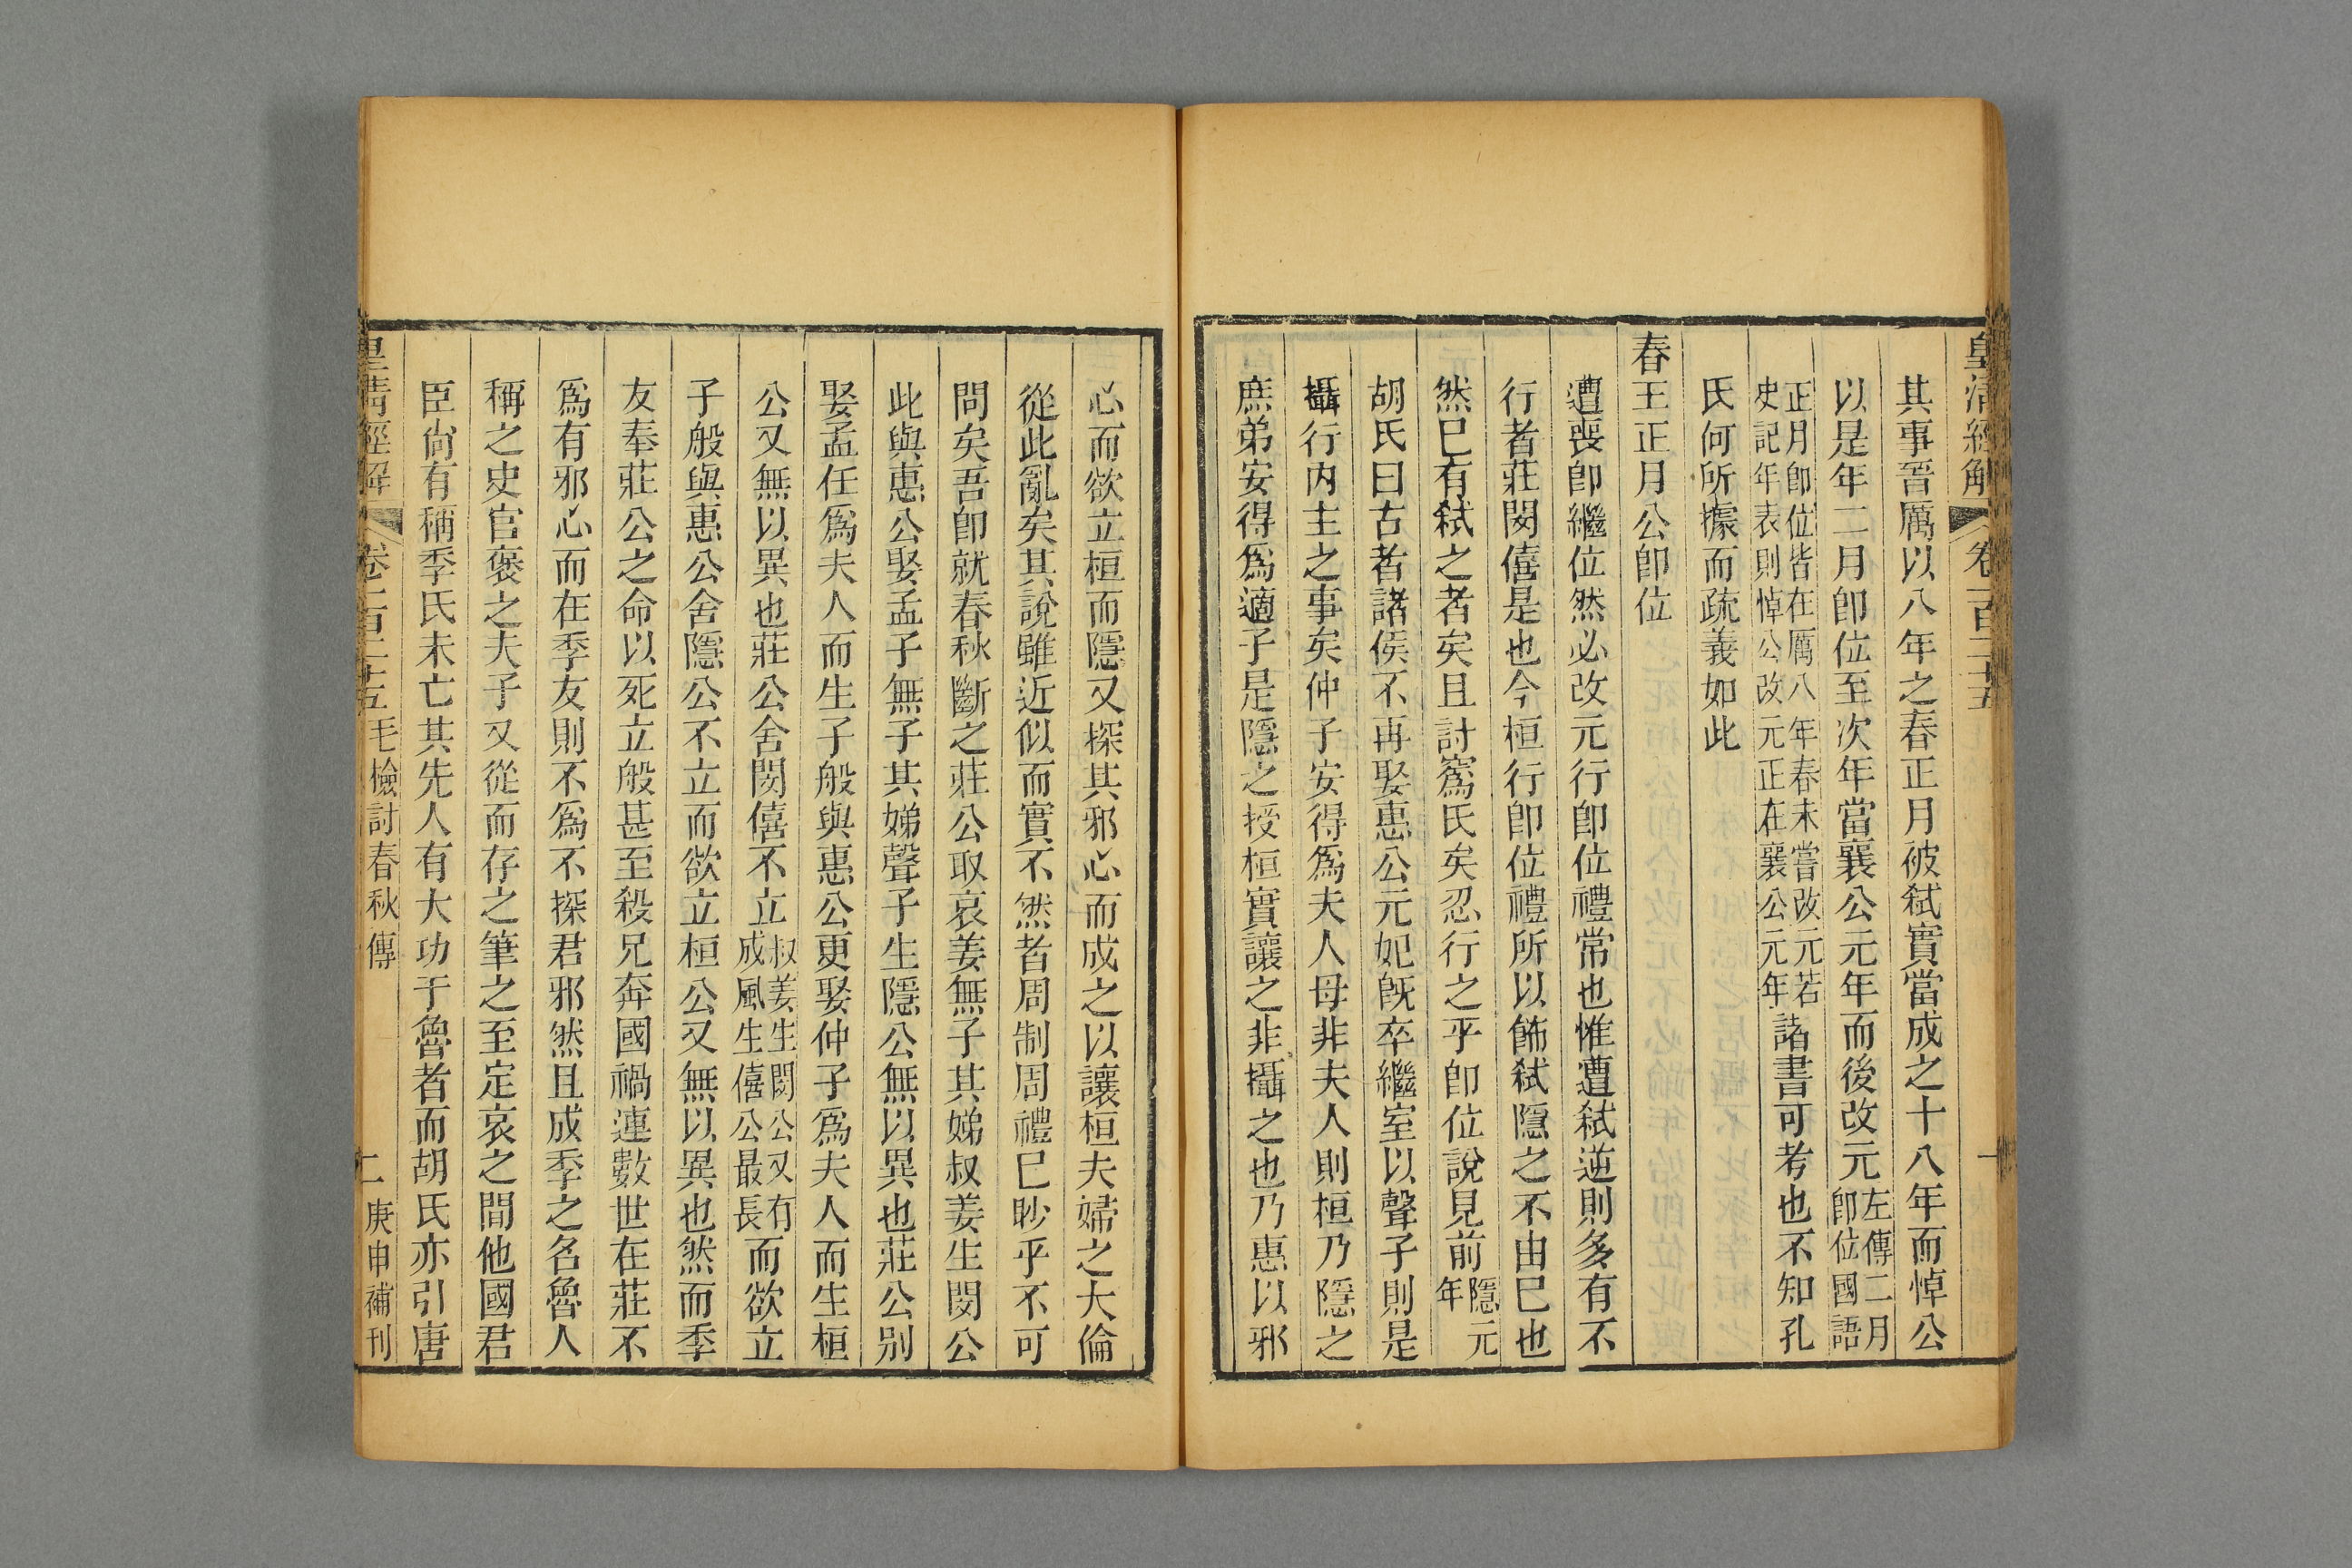 皇清經解 卷一百二十五 一
其事晉厲以八年之春正月被弑實當成之十八年而悼公
以是年二月卽位至次年當襄公元年而後改元左傳二月卽位國語
正月卽位皆在厲八年春未嘗改元若史記年表則悼公改元正在襄公元年諸書可考也不知孔
氏何所據而疏義如此
春王正月公卽位
遭喪卽繼位然必改元行卽位禮常也惟遭弑逆則多有不
行者莊閔僖是也今桓行卽位禮所以飾弑隱之不由已也
然已有弑之者矣且討寪氏矣忍行之乎卽位說見前隱元年
胡氏曰古者諸侯不再娶惠公元妃旣卒繼室以聲子則是
攝行内主之事矣仲子安得爲夫人母非夫人則桓乃隱之
庶弟安得爲適子是隱之授桓實讓之非攝之也乃惠以邪
心而欲立桓而隱又探其邪心而成之以讓桓夫婦之大倫
從此亂矣其說雖近似而實不然者周制周禮已眇乎不可
問矣吾卽就春秋斷之莊公取哀姜無子其娣叔姜生閔公
此與惠公娶孟子無子其娣聲子生隱公無以異也莊公别
娶孟任爲夫人而生子般與惠公更娶仲子爲夫人而生桓
公又無以異也莊公舍閔僖不立叔姜生閔公又有成風生僖公最長而欲立
子般與惠公舍隱公不立而欲立桓公又無以異也然而季
友奉莊公之命以死立般甚至殺兄奔國禍連數世在莊不
爲有邪心而在季友則不爲不探君邪然且成季之名魯人
稱之史官褒之夫子又從而存之筆之至定哀之間他國君
臣尙有稱季氏未亡其先人有大功于魯者而胡氏亦引唐
皇清經解 卷一百二十五 毛檢討春秋傳 二 庚申補刊